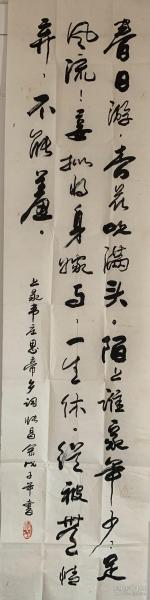 春日游，杏花吹满头，陌上谁家年少，足
风流！妾拟将身嫁与，一生休，纵被无情
弃，不能羞。
韦庄思帝乡词 戊子年书